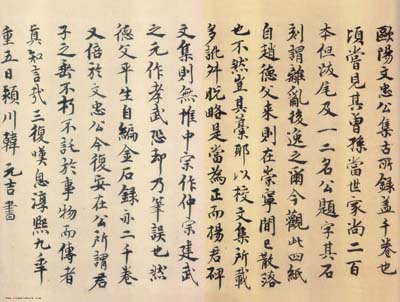 歐陽文忠公集古所錄蓋千卷也
頃嘗見其曾孫當世家尚二百
本但跋尾及一二名公題字其石
刻謂離亂後逸之爾今觀此四紙
自趙德父來則在崇寧間已散落
也不然豈其藁耶以校文集所載
多訛外脫略是當為正而楊君碑
文集則無惟中宗作仲宗建武
之元作孝武恐却乃筆誤也然
德父平生自編金石錄亦二千卷
又倍於文忠公今復安在公所謂君
子之垂不朽不託於事物而傳者
真知言哉三復嘆息淳熙九年
重五日潁川韓元吉書